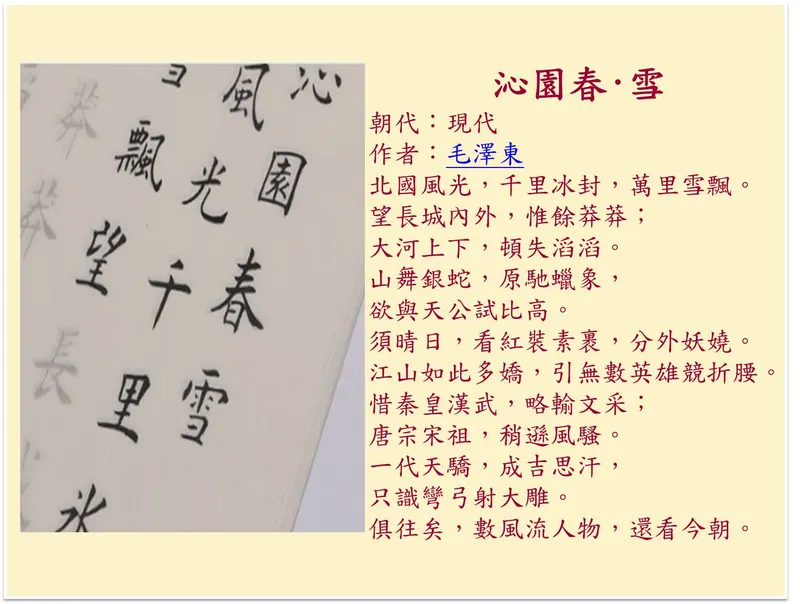 沁園春·雪
朝代：現代
作者：毛澤東
北國風光，千里冰封，萬里雪飄。
望長城內外，惟餘莽莽；
大河上下，頓失滔滔。
山舞銀蛇，原馳蠟象，
欲與天公試比高。
須晴日，看紅裝素裹，分外妖嬈。
江山如此多嬌，引無數英雄競折腰。
惜秦皇漢武，略輸文采；
唐宗宋祖，稍遜風騷。
一代天驕，成吉思汗，
只識彎弓射大雕。
俱往矣，數風流人物，還看今朝。
沁園春雪
風光千里
飄望
莽莽長